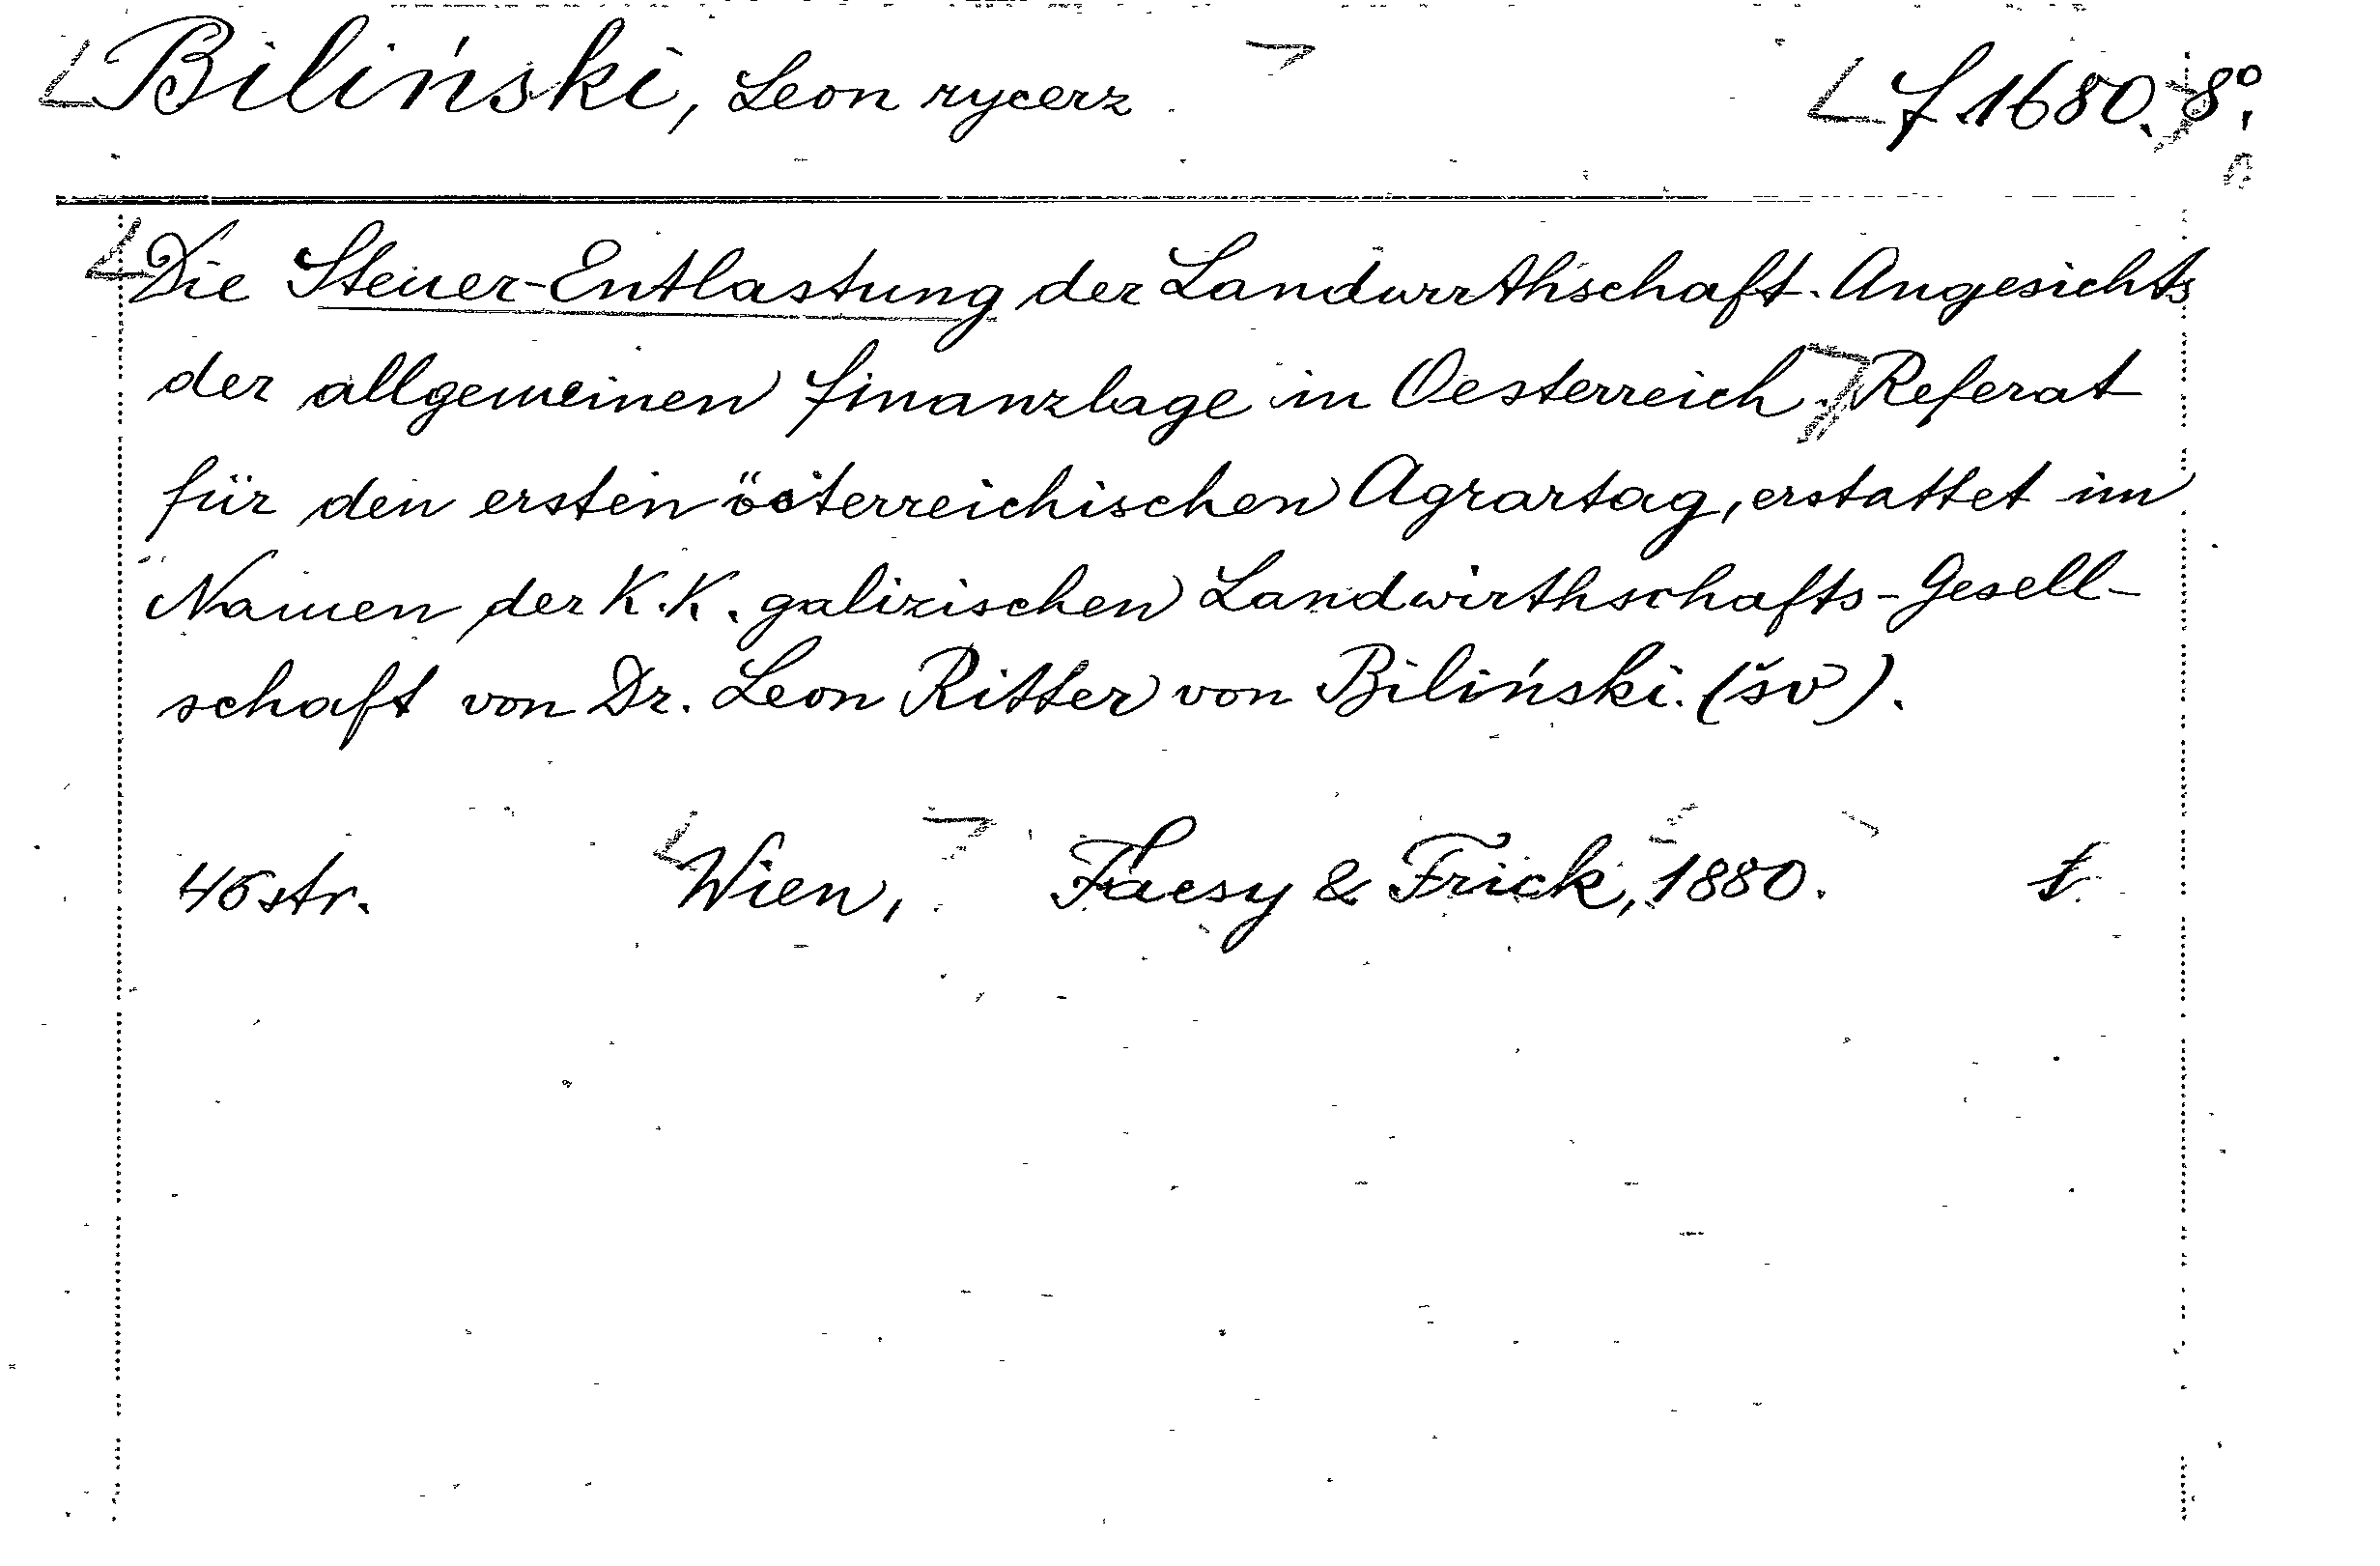 Biliński, Leon rycerz
f 1680. 8°.
Die Steuer-Entlastung der Landwirthschaft. Angesichts
der allgemeinen Finanzlage in Oesterreich. Referat
für den ersten österreichischen Agrartag, erstattet im
Namen der K. K. galizischen Landwirthschafts-Gesell-
schaft von Dr. Leon Ritter von Biliński. (šv).
46 str. Wien, Faesy & Frick, 1880.